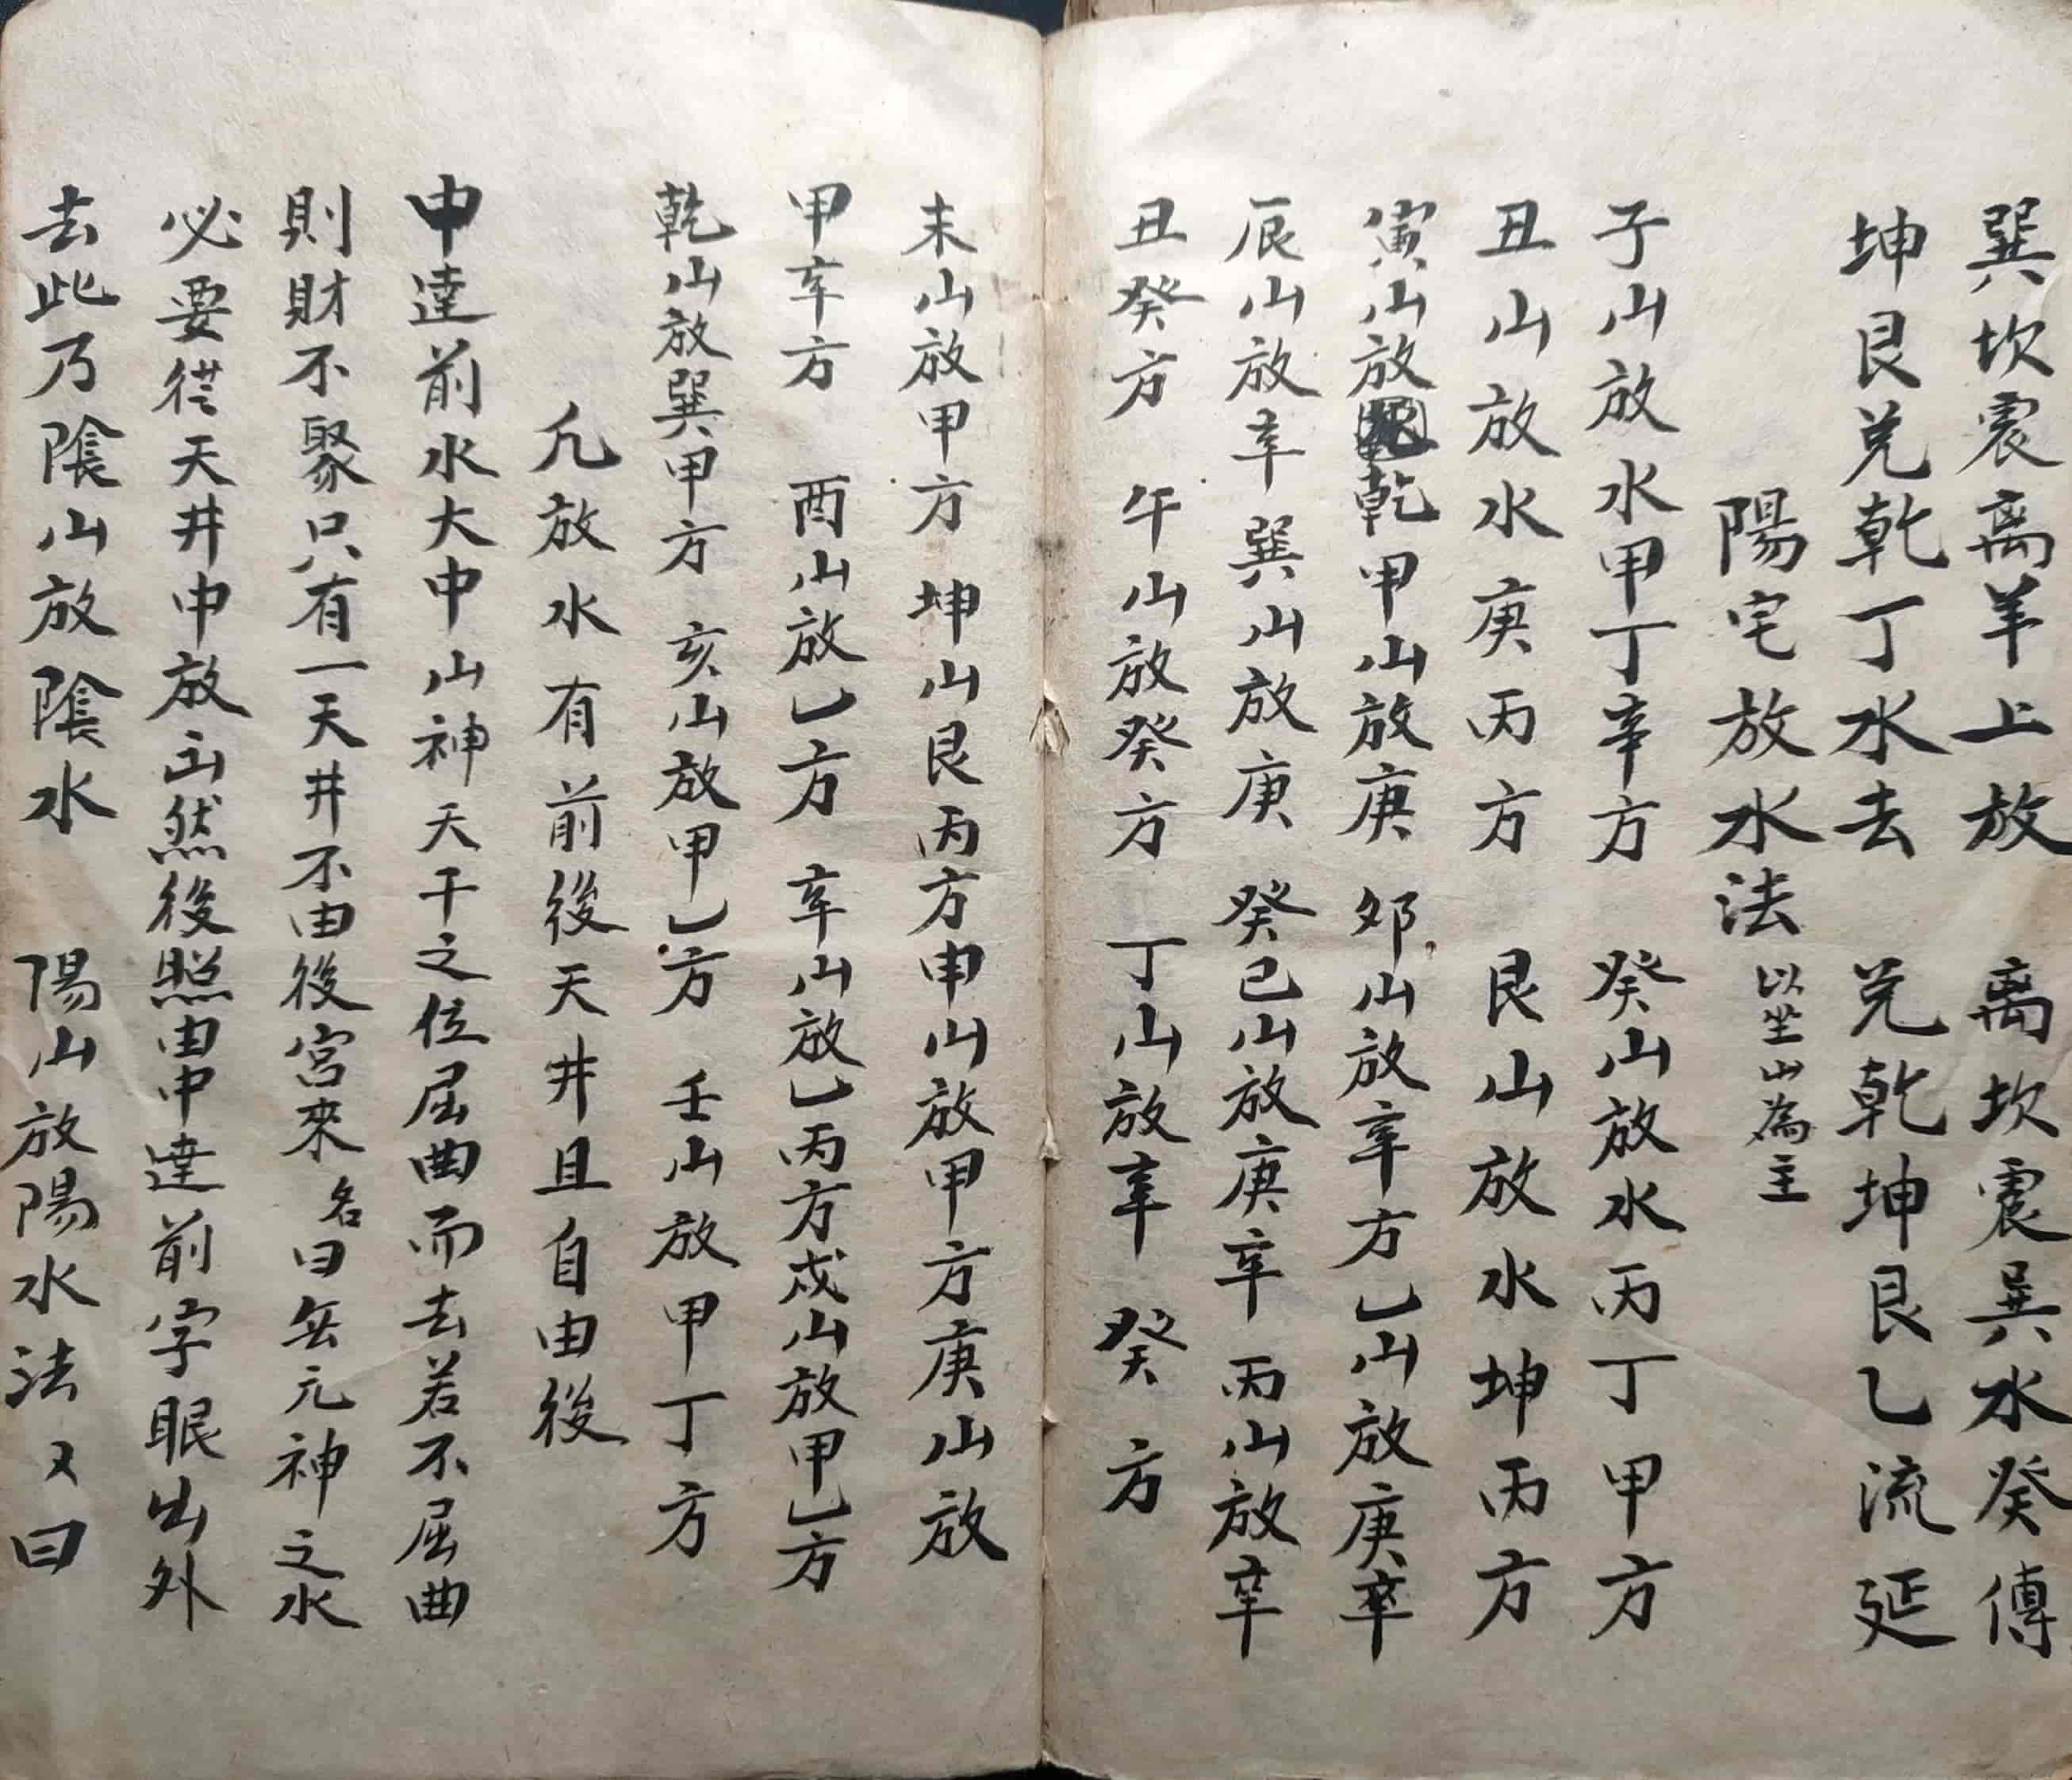 巽坎震离羊上放　离坎震巽水癸傳
坤艮兌乾丁水去　兌乾坤艮乙流延
陽宅放水法 以坐山為主
子山放水甲丁辛方　癸山放水丙丁甲方
丑山放水庚丙方　艮山放水坤丙方
寅山放乾甲山放庚　夘山放辛方乙山放庚辛
辰山放辛巽山放庚　癸巳山放庚辛丙山放辛
丑癸方　午山放癸方　丁山放辛癸方
未山放甲方　坤山艮丙方申山放甲方庚山放
甲辛方　酉山放乙方　辛山放乙丙方戌山放甲乙方
乾山放巽甲方　亥山放甲乙方　壬山放甲丁方
凢放水有前後天井且自由後
中達前水大中山神天干之位屈曲而去若不屈曲
則財不聚只有一天井不由後宮來名曰無元神之水
必要從天井中放出然後照由中達前字眼出外
去此乃陰山放陰水　陽山放陽水法又曰